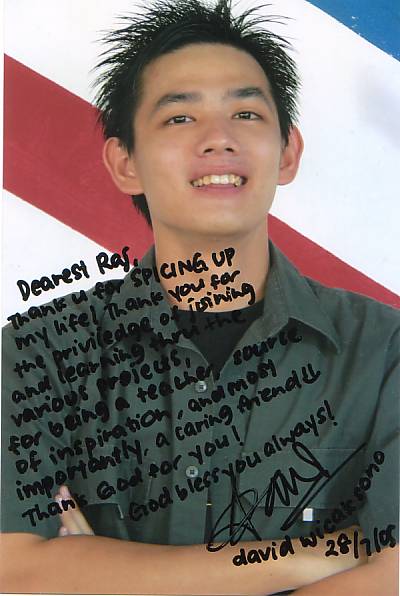 Dearest Raj,
Thank u for SPICING UP
my life! Thank you for
the priviledge of joining
and learning thru the
various projects,
for being a teacher, source
of inspiration, and most
importantly, a caring friend!!
Thank God for you!
God bless you always!
david wicaksono
28/7/05